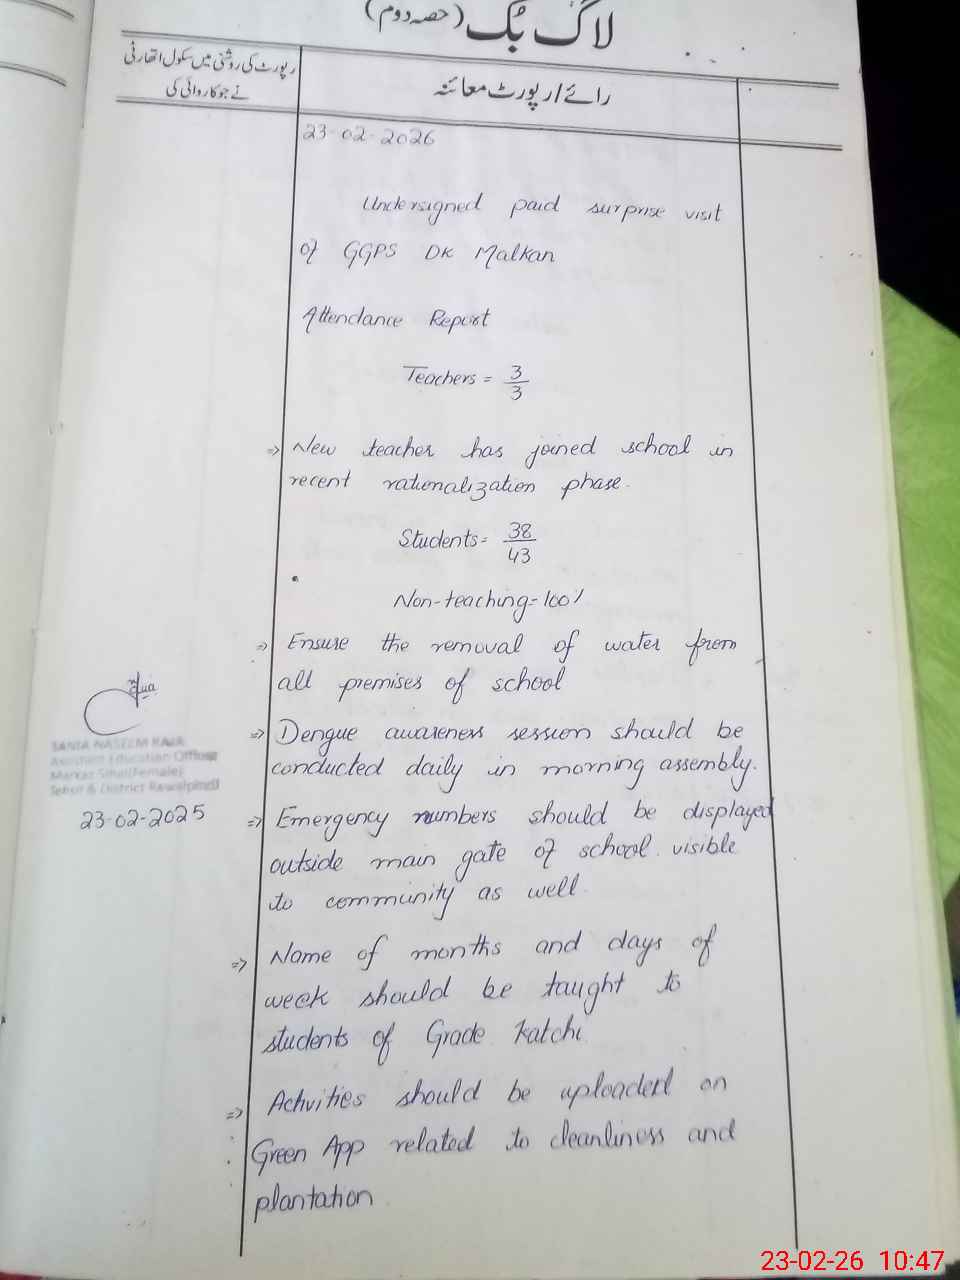 لاگ بُک (حصہ دوم)
رائے / رپورٹ معائنہ
رپورٹ کی روشنی میں سکول اتھارٹی
نے جو کاروائی کی
23-02-2026
Undersigned paid surprise visit
of GGPS DK Malkan
Attendance Report
Teachers = 3/3
⇒ New teacher has joined school in
recent rationalization phase.
Students = 38/43
Non-teaching = 100%
⇒ Ensure the removal of water from
all premises of school
⇒ Dengue awareness session should be
conducted daily in morning assembly.
⇒ Emergency numbers should be displayed
outside main gate of school visible
to community as well.
⇒ Name of months and days of
week should be taught to
students of Grade Katchi.
⇒ Activities should be uploaded on
Green App related to cleanliness and
plantation
SANIA NASEEM RAJA
Assistant Education Officer
Markaz Sihal(Female)
Tehsil & District Rawalpindi
23-02-2025
23-02-26 10:47